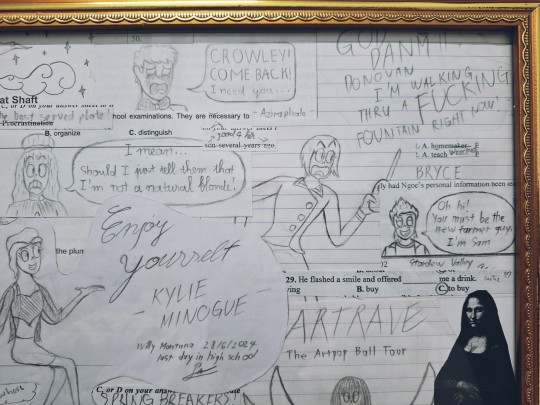 CROWLEY!
COME BACK!
I need you...
- Aziraphale
GOD
DAMMIT
DONOVAN
I'M WALKING
THRU A FUCKING
FOUNTAIN RIGHT NOW!
at Shaft
C, or D on your answer sheet to
the best served plate!
Procrastination
hool examinations. They are necessary to
B. organize
C. distinguish
son several years ago.
I mean...
Should I just tell them that
I'm not a natural blonde!
A. homemaker
A. teach
BRYCE
ly had Ngoc's personal information been
Oh hi!
You must be the
new farmer guy.
I'm Sam
Stardew Valley
the plum
Enjoy
Yourself
- KYLIE
MINOGUE
Willy Montana 28/6/2024
last day in high school
29. He flashed a smile and offered
me a drink.
ring
B. buy
C. to buy
ARTRAVE
The Artpop Ball Tour
C, or D on your
SPRING BREAKERS!